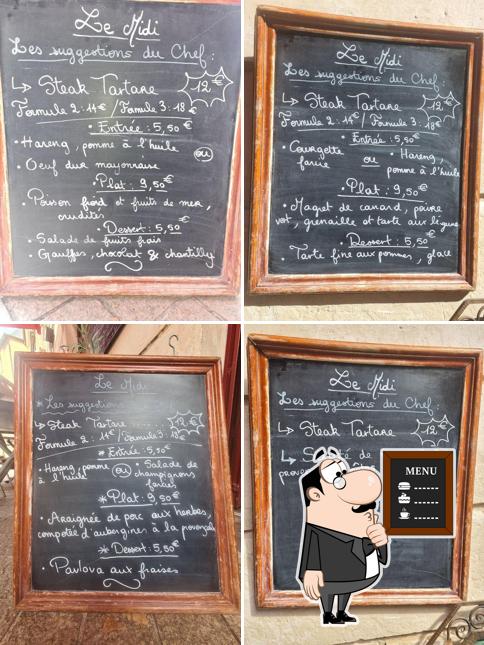 Le Midi
Les suggestions du Chef :
↳ Steak Tartare 12 €
Formule 2 : 14€ / Formule 3 : 18€
• Entrée : 5,50 €
• Hareng, pomme à l'huile
ou
• Oeuf dur mayonnaise
• Plat : 9,50 €
• Poisson froid et fruits de mer,
crudités
• Dessert : 5,50 €
• Salade de fruits frais
• Gauffres, chocolat & chantilly
Le Midi
Les suggestions du Chef :
↳ Steak Tartare 12 €
Formule 2 : 14€ / Formule 3 : 18€
• Entrée : 5,50 €
• Courgette ou • Hareng,
farcie pomme à l'huile
• Plat : 9,50 €
• Magret de canard, poire
grenaille et tarte aux légumes
• Dessert : 5,50 €
• Tarte fine aux pommes, glace
Le Midi
* Les suggestions
↳ Steak Tartare ..... 12 €
Formule 2 : 14€ / Formule 3 : 18€
* Entrée : 5,50 €
• Hareng, pomme ou • Salade de
à l'huile champignons
farcies
* Plat : 9,50 €
• Araignée de porc aux herbes,
compotée d'aubergines à la provençale
* Dessert : 5,50 €
• Pavlova aux fraises
Le Midi
Les suggestions du Chef :
↳ Steak Tartare 12 €
de
MENU